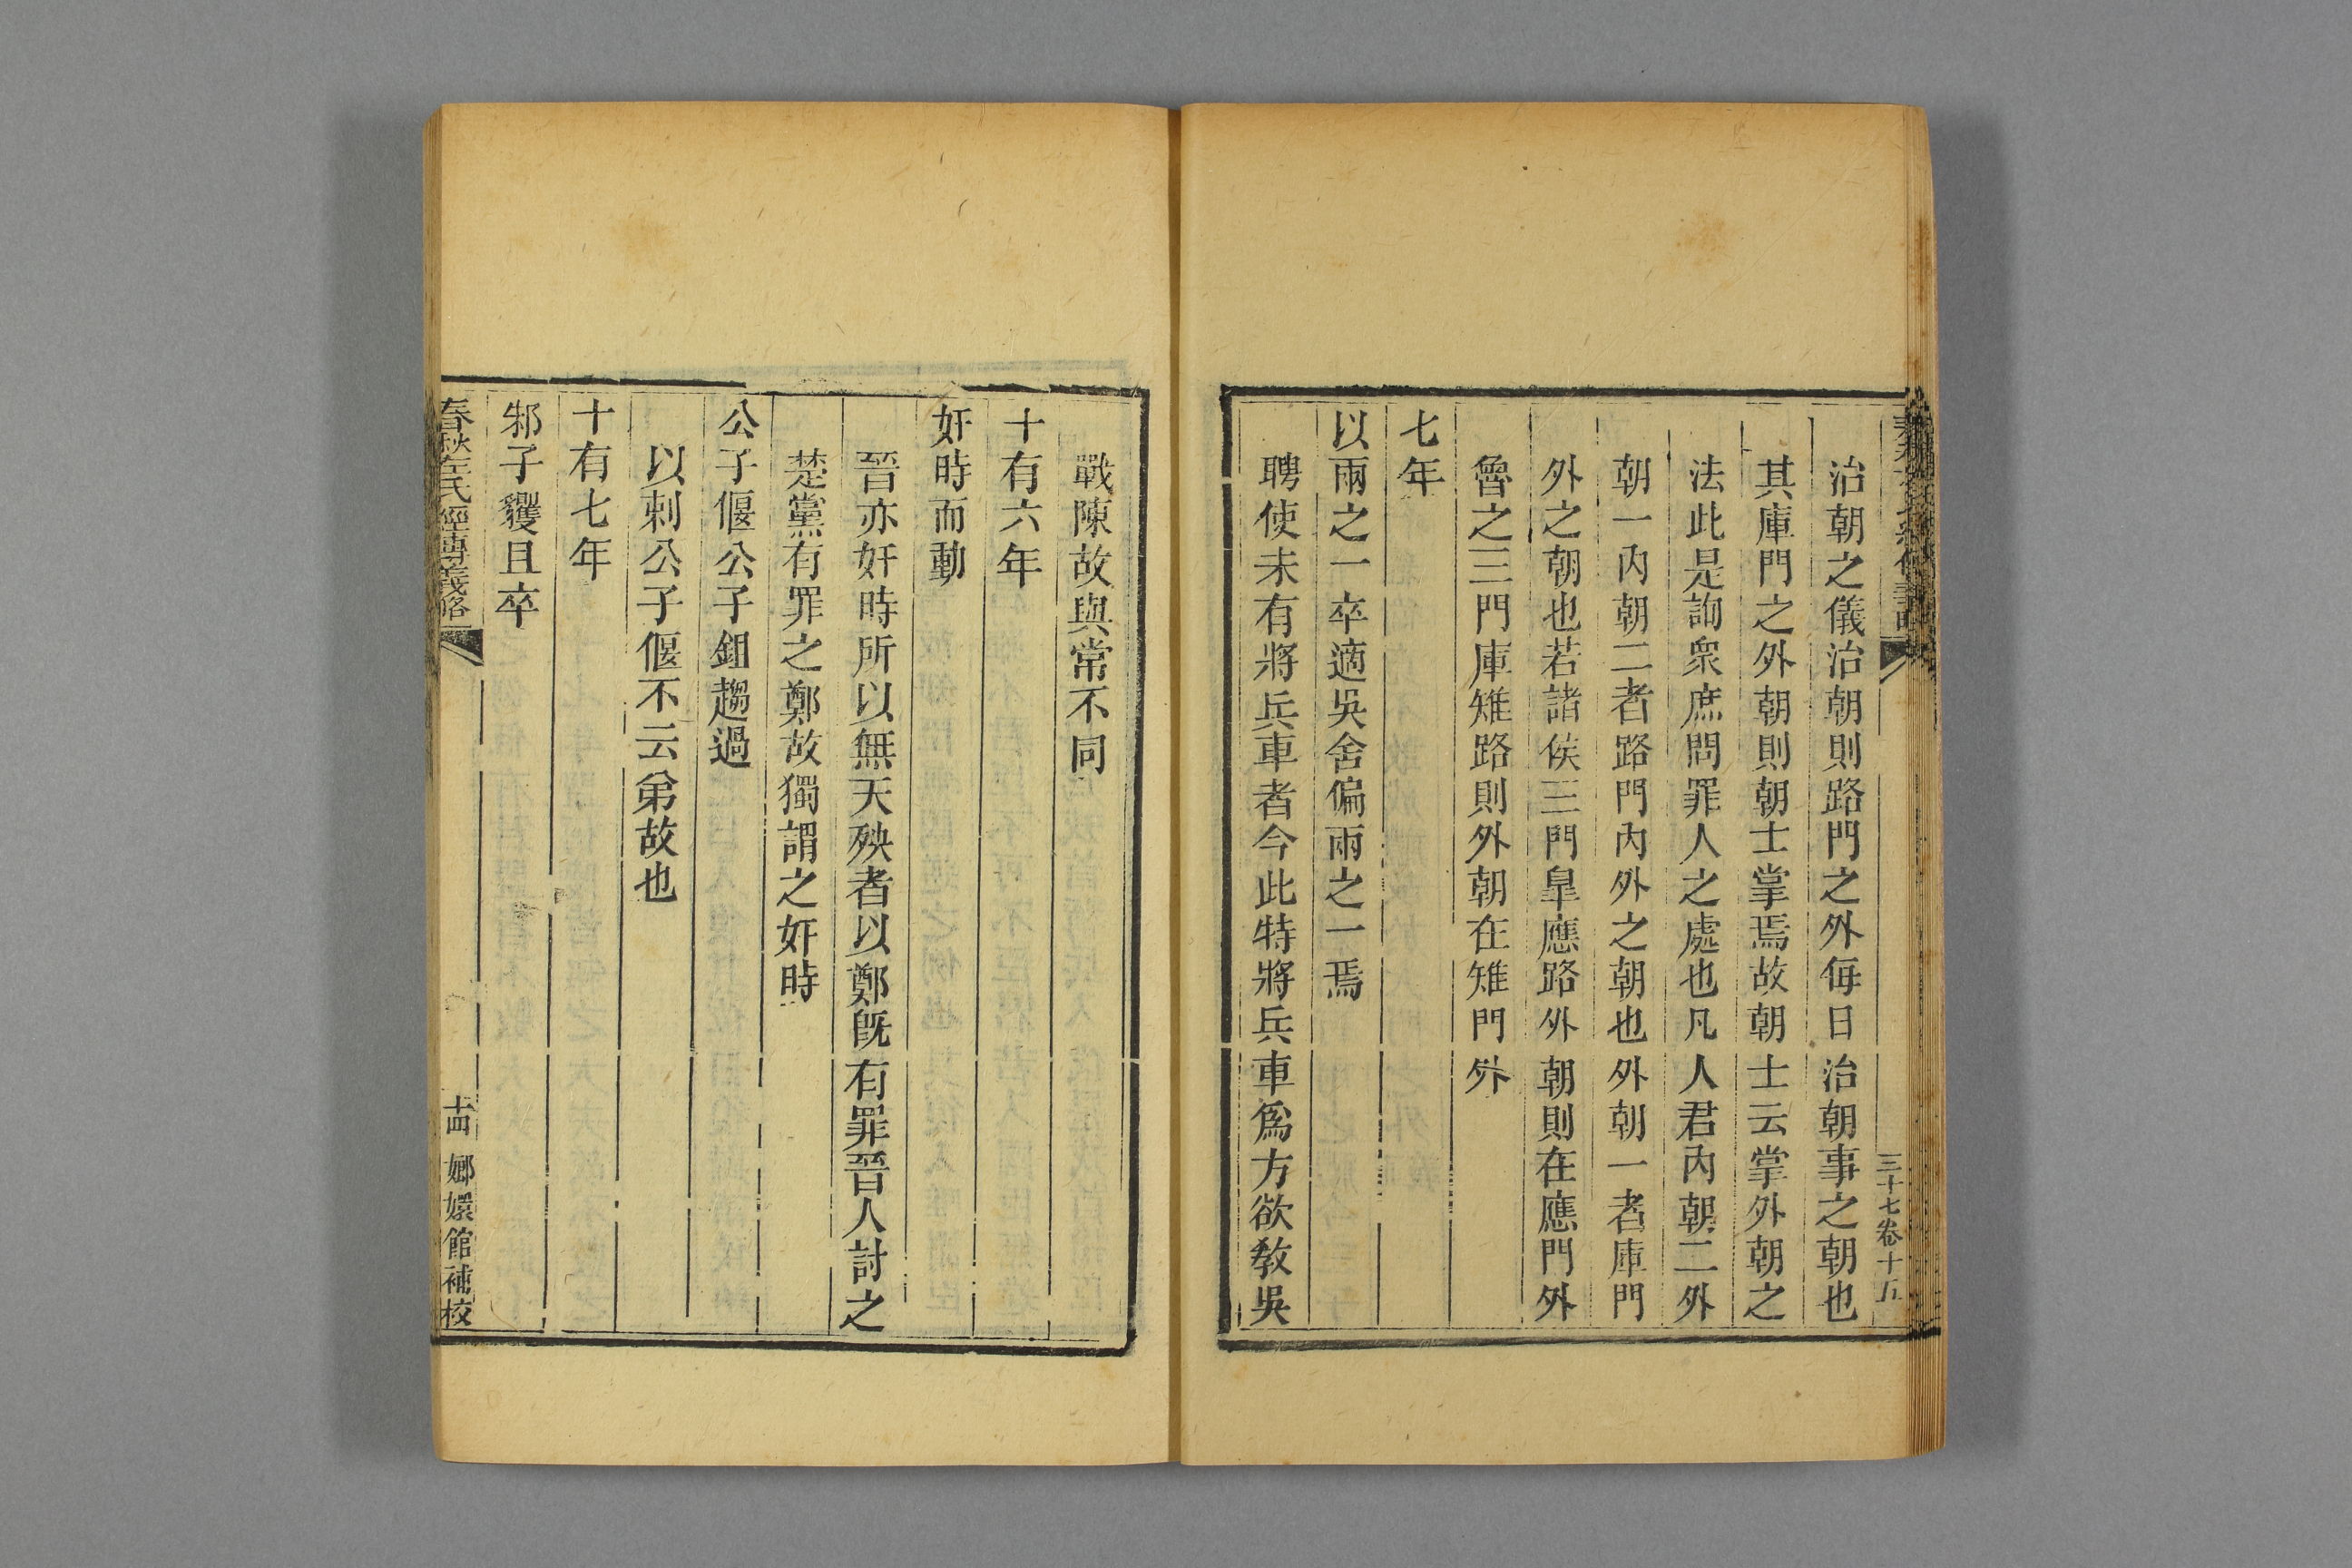 三十七卷十五
治朝之儀治朝則路門之外每日治朝事之朝也
其庫門之外朝則朝士掌焉故朝士云掌外朝之
法此是詢衆庶問罪人之處也凡人君內朝二外
朝一內朝二者路門內外之朝也外朝一者庫門
外之朝也若諸侯三門皐應路外朝則在應門外
魯之三門庫雉路則外朝在雉門外
七年
以兩之一卒適吳舍偏兩之一焉
聘使未有將兵車者今此特將兵車爲方欲敎吳
戰陳故與常不同
十有六年
奸時而動
晉亦奸時所以無天殃者以鄭旣有罪晉人討之
楚黨有罪之鄭故獨謂之奸時
公子偃公子鉏趨過
以刺公子偃不云弟故也
十有七年
邾子貜且卒
春秋左氏經傳義略 十四 嫏嬛館補校